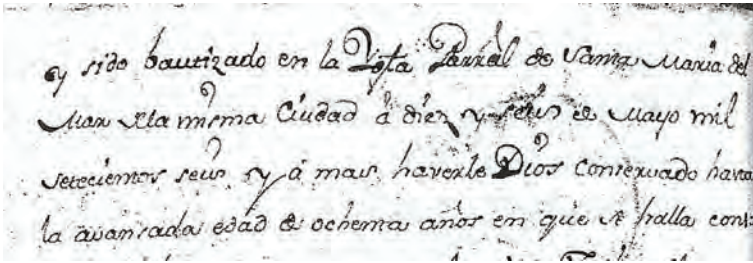 y sido bautizado en la Ygta Parral de Santa Maria del
Mar dela misma Ciudad â diez y seis de Mayo mil
setecientos seis y â mas haverle Dios conservado hasta
la avansada edad de ochenta años en que se halla con